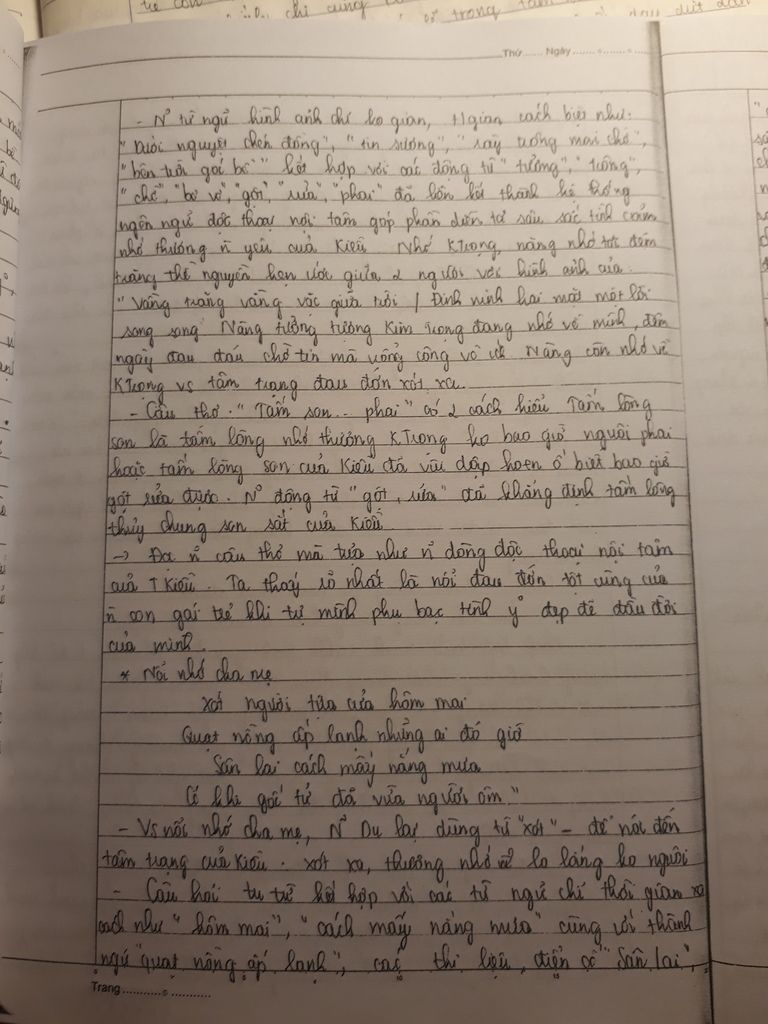 Thứ ...... Ngày ......
- N² từ ngữ hình ảnh chỉ ko gian, tgian cách biệt như:
"Dưới nguyệt chén đồng", "tin sương", "rày trông mai chờ",
"bên trời góc bể" kết hợp với các động từ "tưởng", "trông",
"chờ", "bơ vơ", "gột", "rửa", "phai" đã
ngôn ngữ độc thoại nội tâm góp phần diễn tả sâu sắc tình cảm
nhớ thương ñ yêu của Kiều. Nhớ KTrọng, nàng nhớ tới đêm
trăng thề nguyền hẹn ước giữa 2 người với hình ảnh của:
"Vầng trăng vằng vặc giữa trời / Đinh ninh hai mặt một lời
song song" Nàng tưởng tượng Kim Trọng đang nhớ về mình, đêm
ngày đau đáu chờ tin mà uổng công vô ích. Nàng còn nhớ về
KTrọng vs tâm trạng đau đớn xót xa.
- Câu thơ: "Tấm son .. phai" có 2 cách hiểu Tấm lòng
son là tấm lòng nhớ thương KTrọng ko bao giờ nguôi phai
hoặc tấm lòng son của Kiều đã vùi dập hoen ố biết bao giờ
gột rửa được. N² động từ "gột, rửa" đã khẳng định tấm lòng
thủy chung son sắt của Kiều
→ Đa ñ câu thơ mà tựa như ñ dòng độc thoại nội tâm
của TKiều. Ta thấy rõ nhất là nỗi đau đớn tột cùng của
ñ con gái trẻ khi tự mình phụ bạc tình y° đẹp đẽ đầu đời
của mình.
* Nỗi nhớ cha mẹ
Xót người tựa cửa hôm mai
Quạt nồng ấp lạnh những ai đó giờ
Sân lai cách mấy nắng mưa
Có khi gốc tử đã vừa người ôm"
- Vs nỗi nhớ cha mẹ, N² Du lại dùng từ "xót" - để nói đến
tâm trạng của Kiều: xót xa, thương nhớ về lo lắng ko nguôi
- Câu hỏi tu từ kết hợp với các từ ngữ chỉ thời gian xa
cách như "hôm mai", "cách mấy nắng mưa" cùng với thành
ngữ "quạt nồng ấp lạnh", các thi liệu, điển cố "Sân lai",
Trang ......